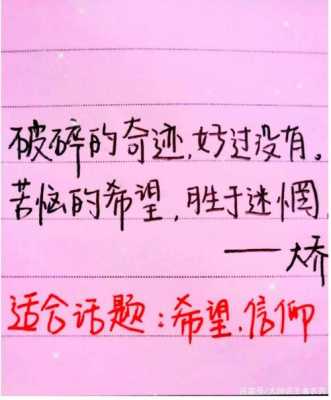 破碎的奇迹,好过没有。
苦恼的希望,胜于迷惘,
——大乔
适合话题:希望、信仰